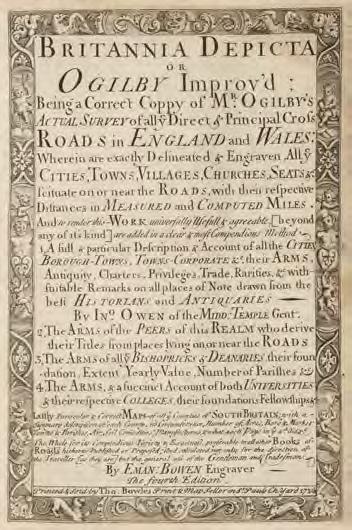 BRITANNIA DEPICTA
OR
OGILBY Improv'd:
Being a Correct Coppy of Mr. OGILBY's
ACTUAL SURVEY of all ye Direct & Principal Cross
ROADS in ENGLAND and WALES:
Wherein are exactly Delineated & Engraven, All ye
CITIES, TOWNS, VILLAGES, CHURCHES, SEATS &c.
scituate on or near the ROADS, with their respective
Distances in MEASURED and COMPUTED MILES.
And to render this WORK universally Usefull & agreeable, [beyond
any of its kind] are added in a clear & most Compendious Method
1. A full & particular Description & Account of all the CITIES,
BOROUGH-TOWNS, TOWNS-CORPORATE &c. their ARMS,
Antiquity, Charters, Privileges, Trade, Rarities, &c. with
suitable Remarks on all places of Note drawn from the
best HISTORIANS and ANTIQUARIES
By Ino. OWEN of the MIDD: TEMPLE Gent.
2. The ARMS of the PEERS of this REALM who derive
their Titles from places lying on, or near the ROADS
3. The ARMS of all ye BISHOPRICKS & DEANARIES, their foun
dation, Extent, Yearly Value, Number of Parishes &c.
4. The ARMS, & a succinct Account of both UNIVERSITIES
& their respective COLLEGES, their foundations, Fellowships &c
Lastly Particular & Correct MAPS of all ye Counties of SOUTH BRITAIN; with a
Summary description of each County, its Circumference, Number of Acres, Boro' & Market
Towns & Parishes, Air, Soil, Commodities, Manufactures,
The Whole for its Compendious Variety & Exactness, preferable to all other Books of
Roads hitherto Published or Proposed; And calculated not only for the direction of
the Traveller (as they are) but the general use of the Gentleman and Tradesman.
By EMAN: BOWEN Engraver
The fourth Edition
Printed & sold by Tho. Bowles Print & Map Seller next ye Chapter House in St. Pauls Ch. Yard